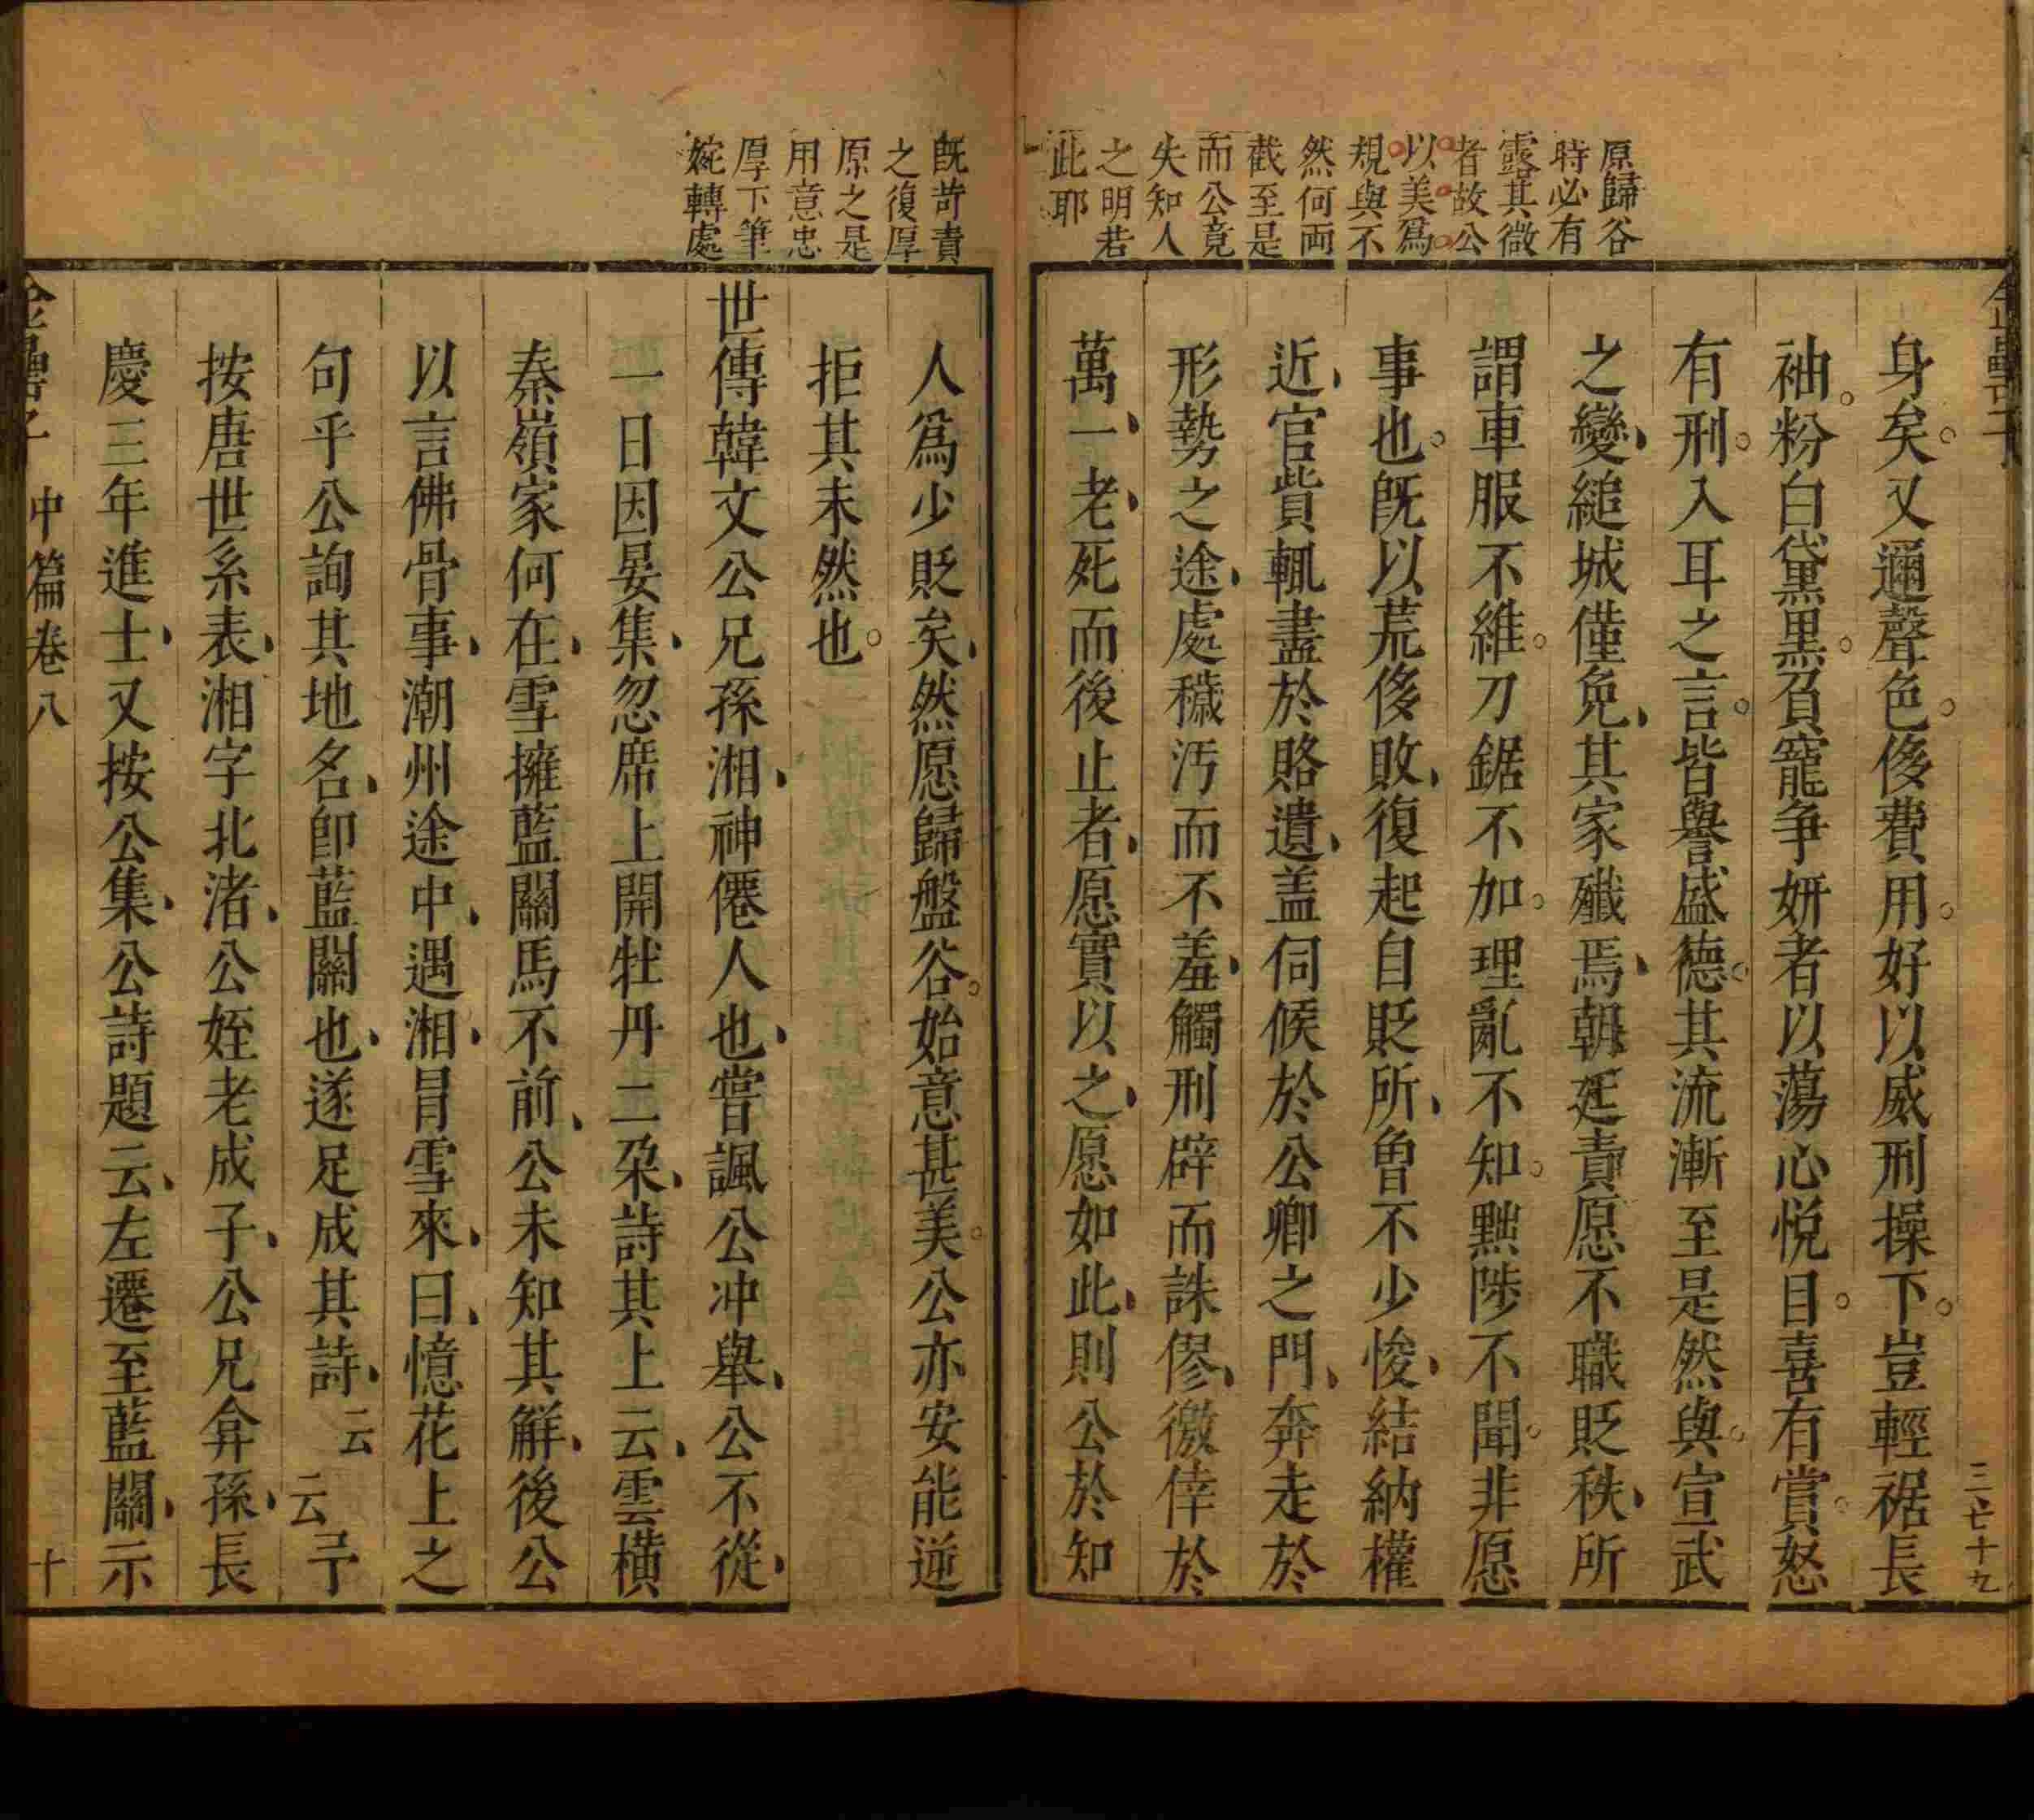 原歸谷
時必有
露其微
者故公
以美爲
規與不
然何兩
截至是
而公竟
失知人
之明若
此耶
身矣又邇聲色侈費用好以威刑操下豈輕裾長
袖粉白黛黒負寵争妍者以蕩心悅目喜有賞怒
有刑入耳之言皆譽盛德其流漸至是然與宣武
之變縋城僅免其家殲焉朝廷責愿不職貶秩所
謂車服不維刀鋸不加理亂不知黜陟不聞非愿
事也既以荒侈敗復起自貶所魯不少悛結納權
近官貲輒盡於賂遺盖伺候於公卿之門奔走於
形勢之途處穢汚而不羞觸刑辟而誅僇徼倖於
萬一老死而後止者愿實以之愿如此則公於知
既苛責
之復厚
原之是
用意忠
厚下筆
婉轉處
人爲少貶矣然愿歸盤谷始意甚美公亦安能逆
拒其未然也
世傳韓文公兄孫湘神僊人也嘗諷公冲舉公不從
一日因晏集忽席上開牡丹二朶詩其上云雲横
秦嶺家何在雪擁藍關馬不前公未知其觧後公
以言佛骨事潮州途中遇湘冒雪來曰憶花上之
句乎公詢其地名卽藍關也遂足成其詩云云予
按唐世系表湘字北渚公姪老成子公兄弇孫長
慶三年進士又按公集公詩題云左遷至藍關示
金罍子 中篇卷八 十